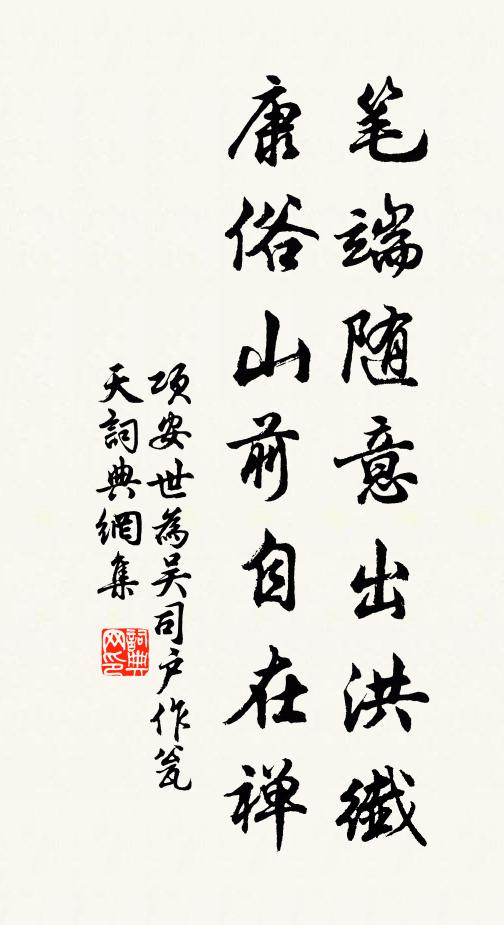 笔端随意出洪纖
康俗山前自在禅
项安世為吴司户作瓮
天詞典網集
詞典
网印